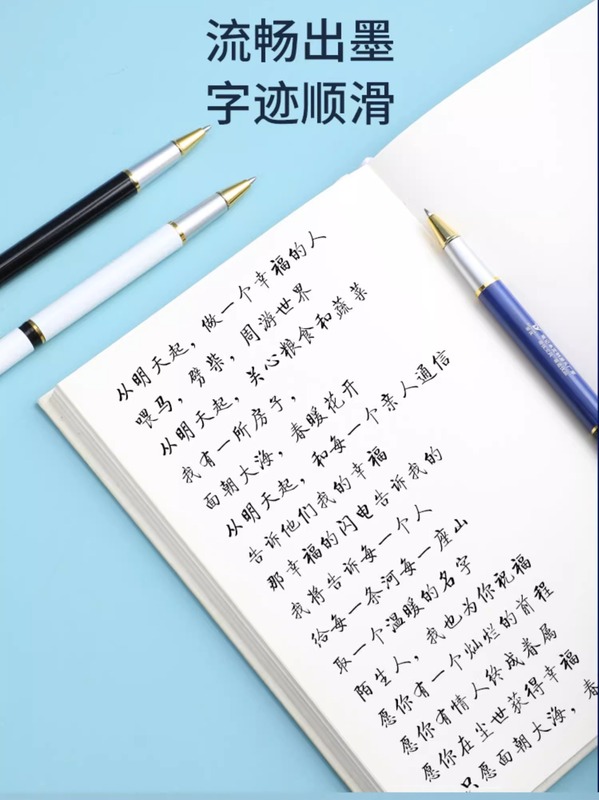 流畅出墨
字迹顺滑
从明天起，做一个幸福的人
喂马，劈柴，周游世界
从明天起，关心粮食和蔬菜
我有一所房子，
面朝大海，春暖花开
从明天起，和每一个亲人通信
告诉他们我的幸福
那幸福的闪电告诉我的
我将告诉每一个人
给每一条河每一座山
取一个温暖的名字
陌生人，我也为你祝福
愿你有一个灿烂的前程
愿你有情人终成眷属
愿你在尘世获得幸福
只愿面朝大海，春